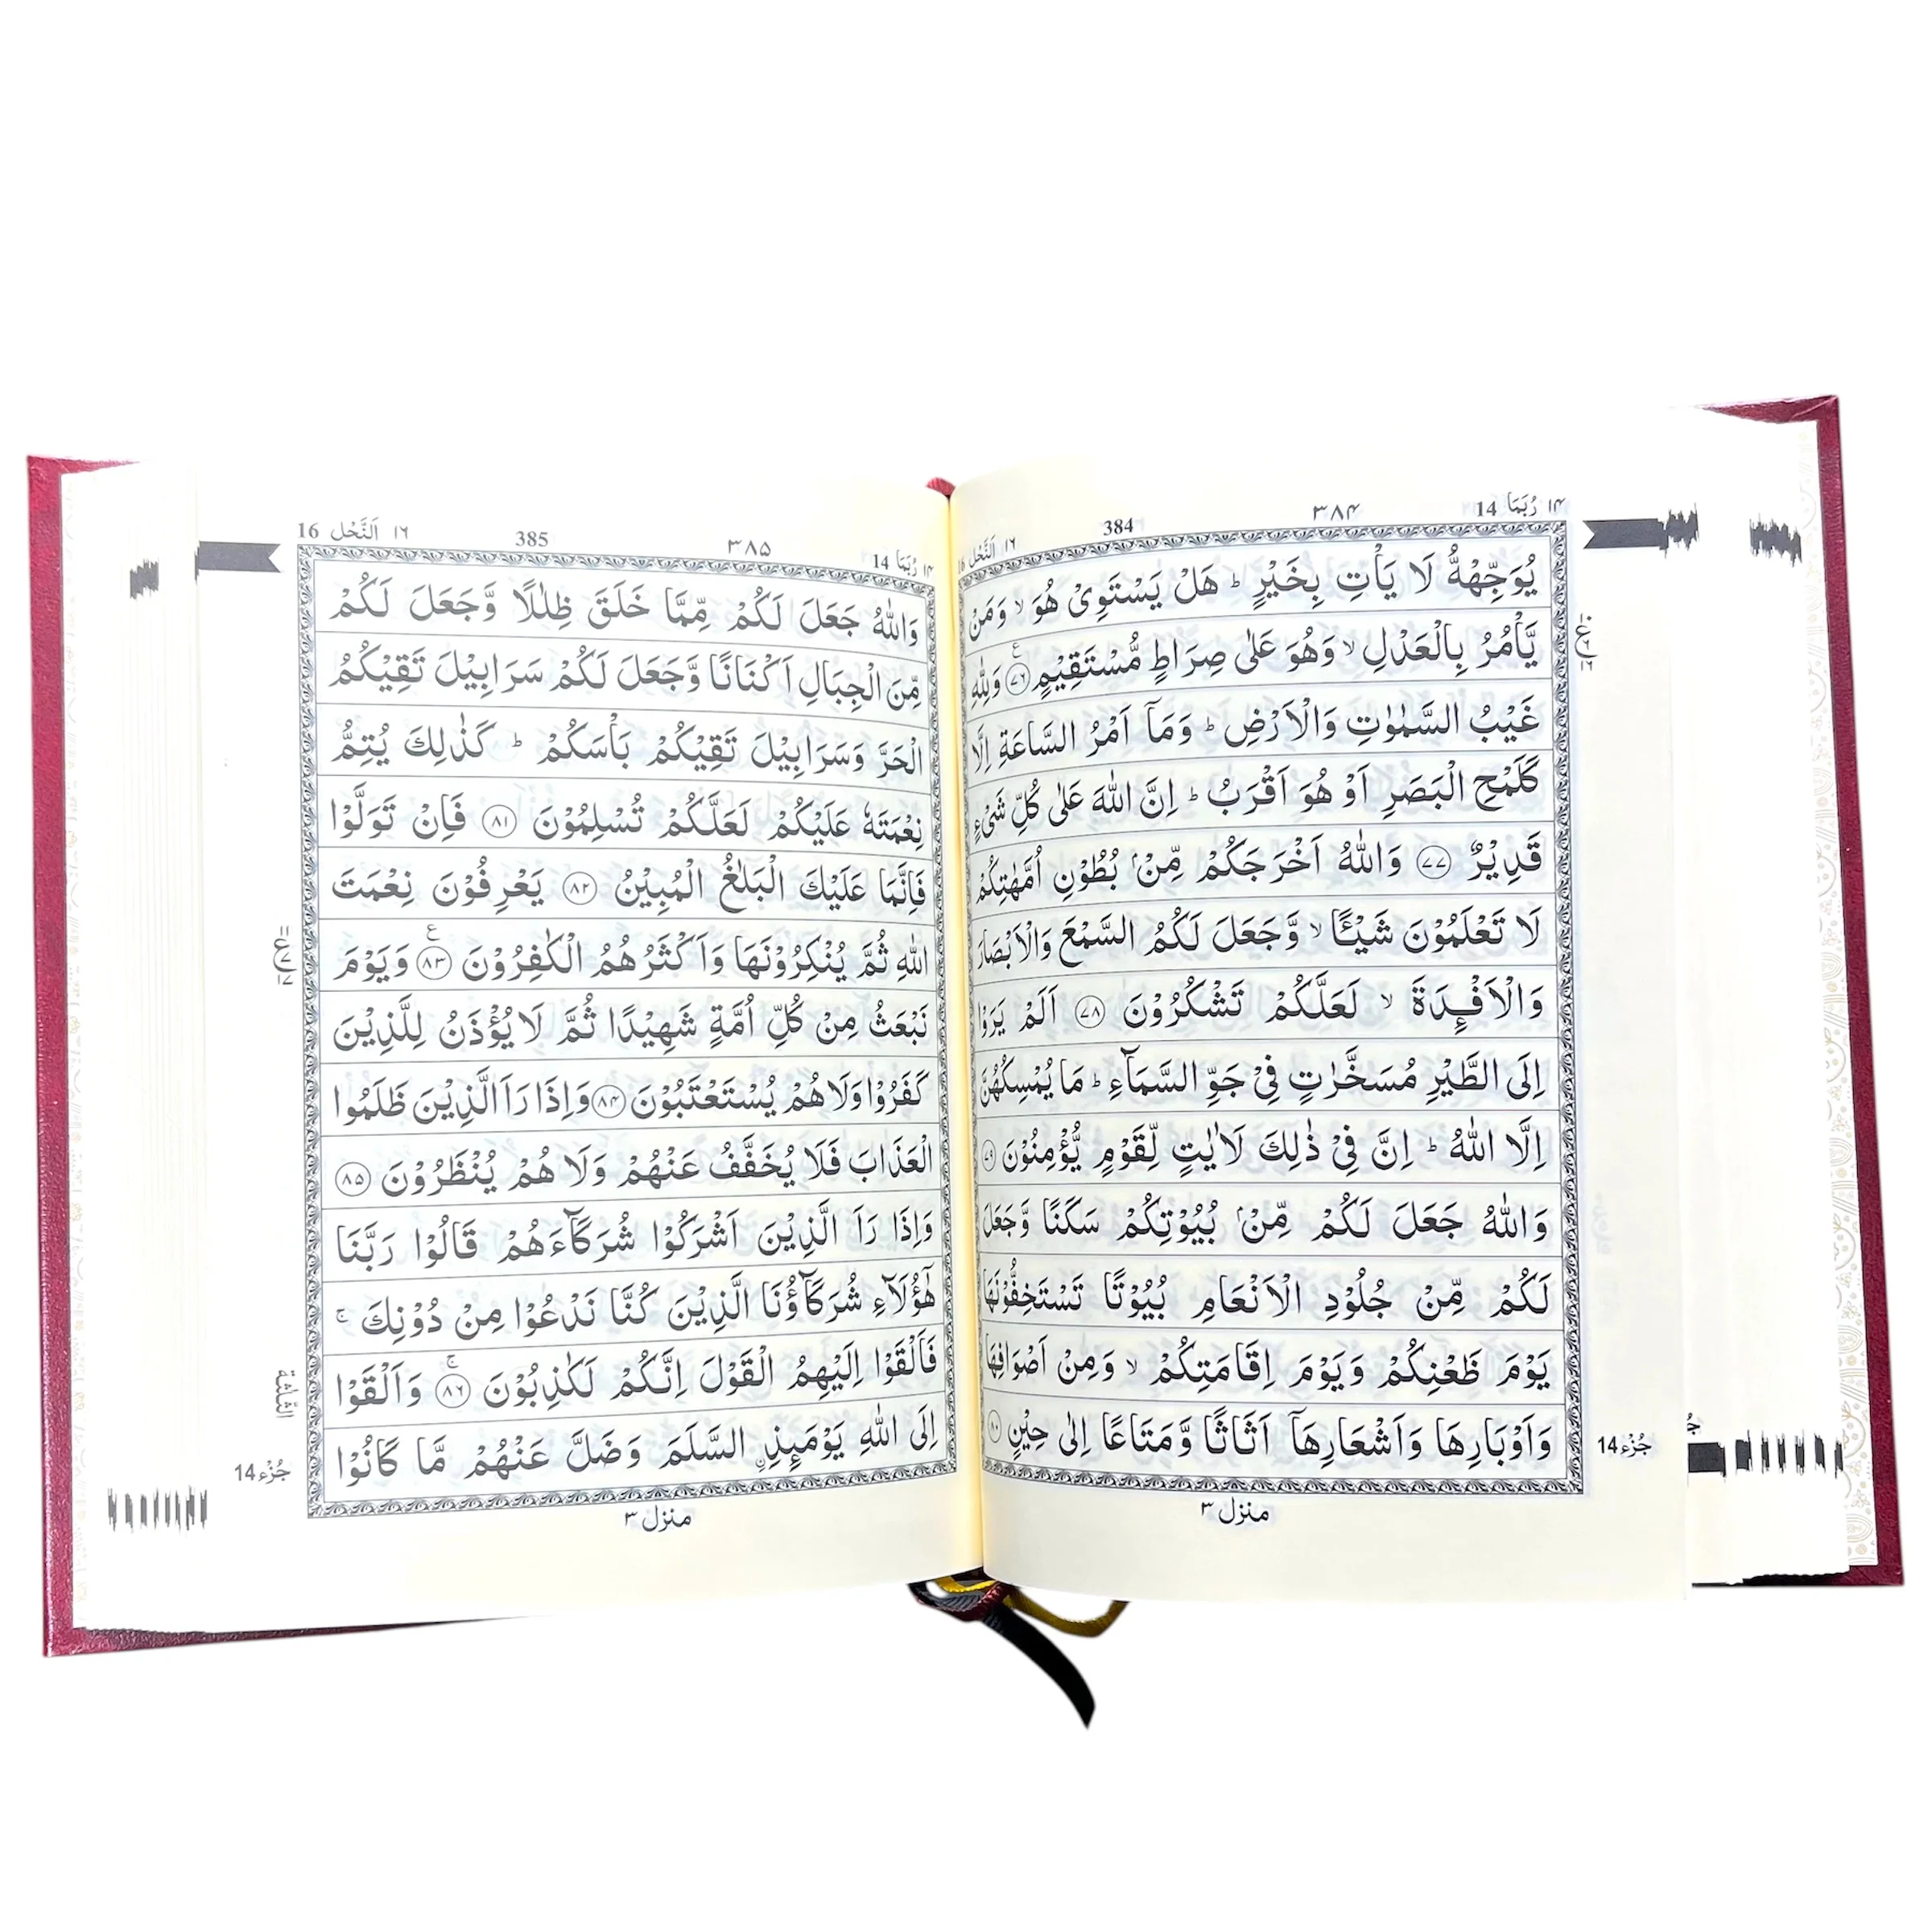 ١٤ رُبَمَا 14
٣٨٤
384
١٦ اَلنَّحْل 16
يُوَجِّهْهُّ لَا يَاْتِ بِخَيْرٍ ؕ هَلْ يَسْتَوِىْ هُوَ ۙ وَمَنْ
يَّاْمُرُ بِالْعَدْلِ ۙ وَهُوَ عَلٰى صِرَاطٍ مُّسْتَقِيْمٍ ﴿۷۶﴾ وَلِلّٰهِ
غَيْبُ السَّمٰوٰتِ وَالْاَرْضِ ؕ وَمَاۤ اَمْرُ السَّاعَةِ اِلَّا
كَلَمْحِ الْبَصَرِ اَوْ هُوَ اَقْرَبُ ؕ اِنَّ اللّٰهَ عَلٰى كُلِّ شَىْءٍ
قَدِيْرٌ ﴿۷۷﴾ وَاللّٰهُ اَخْرَجَكُمْ مِّنْۢ بُطُوْنِ اُمَّهٰتِكُمْ
لَا تَعْلَمُوْنَ شَيْـًٔا ۙ وَّجَعَلَ لَكُمُ السَّمْعَ وَالْاَبْصَارَ
وَالْاَفْـِٕدَةَ ۙ لَعَلَّكُمْ تَشْكُرُوْنَ ﴿۷۸﴾ اَلَمْ يَرَوْا
اِلَى الطَّيْرِ مُسَخَّرٰتٍ فِىْ جَوِّ السَّمَآءِ ؕ مَا يُمْسِكُهُنَّ
اِلَّا اللّٰهُ ؕ اِنَّ فِىْ ذٰلِكَ لَاٰيٰتٍ لِّقَوْمٍ يُّؤْمِنُوْنَ ﴿۷۹﴾
وَاللّٰهُ جَعَلَ لَكُمْ مِّنْۢ بُيُوْتِكُمْ سَكَنًا وَّجَعَلَ
لَكُمْ مِّنْ جُلُوْدِ الْاَنْعَامِ بُيُوْتًا تَسْتَخِفُّوْنَهَا
يَوْمَ ظَعْنِكُمْ وَيَوْمَ اِقَامَتِكُمْ ۙ وَمِنْ اَصْوَافِهَا
وَاَوْبَارِهَا وَاَشْعَارِهَاۤ اَثَاثًا وَّمَتَاعًا اِلٰى حِيْنٍ ﴿۸۰﴾
جُزْء 14
منزل ٣
١٤ رُبَمَا 14
٣٨٥
385
١٦ اَلنَّحْل 16
وَاللّٰهُ جَعَلَ لَكُمْ مِّمَّا خَلَقَ ظِلٰلًا وَّجَعَلَ لَكُمْ
مِّنَ الْجِبَالِ اَكْنَانًا وَّجَعَلَ لَكُمْ سَرَابِيْلَ تَقِيْكُمُ
الْحَرَّ وَسَرَابِيْلَ تَقِيْكُمْ بَاْسَكُمْ ؕ كَذٰلِكَ يُتِمُّ
نِعْمَتَهٗ عَلَيْكُمْ لَعَلَّكُمْ تُسْلِمُوْنَ ﴿۸۱﴾ فَاِنْ تَوَلَّوْا
فَاِنَّمَا عَلَيْكَ الْبَلٰغُ الْمُبِيْنُ ﴿۸۲﴾ يَعْرِفُوْنَ نِعْمَتَ
اللّٰهِ ثُمَّ يُنْكِرُوْنَهَا وَاَكْثَرُهُمُ الْكٰفِرُوْنَ ﴿۸۳﴾ وَيَوْمَ
نَبْعَثُ مِنْ كُلِّ اُمَّةٍ شَهِيْدًا ثُمَّ لَا يُؤْذَنُ لِلَّذِيْنَ
كَفَرُوْا وَلَا هُمْ يُسْتَعْتَبُوْنَ ﴿۸۴﴾ وَاِذَا رَاَ الَّذِيْنَ ظَلَمُوا
الْعَذَابَ فَلَا يُخَفَّفُ عَنْهُمْ وَلَا هُمْ يُنْظَرُوْنَ ﴿۸۵﴾
وَاِذَا رَاَ الَّذِيْنَ اَشْرَكُوْا شُرَكَآءَهُمْ قَالُوْا رَبَّنَا
هٰٓؤُلَآءِ شُرَكَآؤُنَا الَّذِيْنَ كُنَّا نَدْعُوْا مِنْ دُوْنِكَ ۚ
فَاَلْقَوْا اِلَيْهِمُ الْقَوْلَ اِنَّكُمْ لَكٰذِبُوْنَ ﴿۸۶﴾ۚ وَاَلْقَوْا
اِلَى اللّٰهِ يَوْمَىِٕذِ ۨالسَّلَمَ وَضَلَّ عَنْهُمْ مَّا كَانُوْا
الثلثة
جُزْء 14
منزل ٣